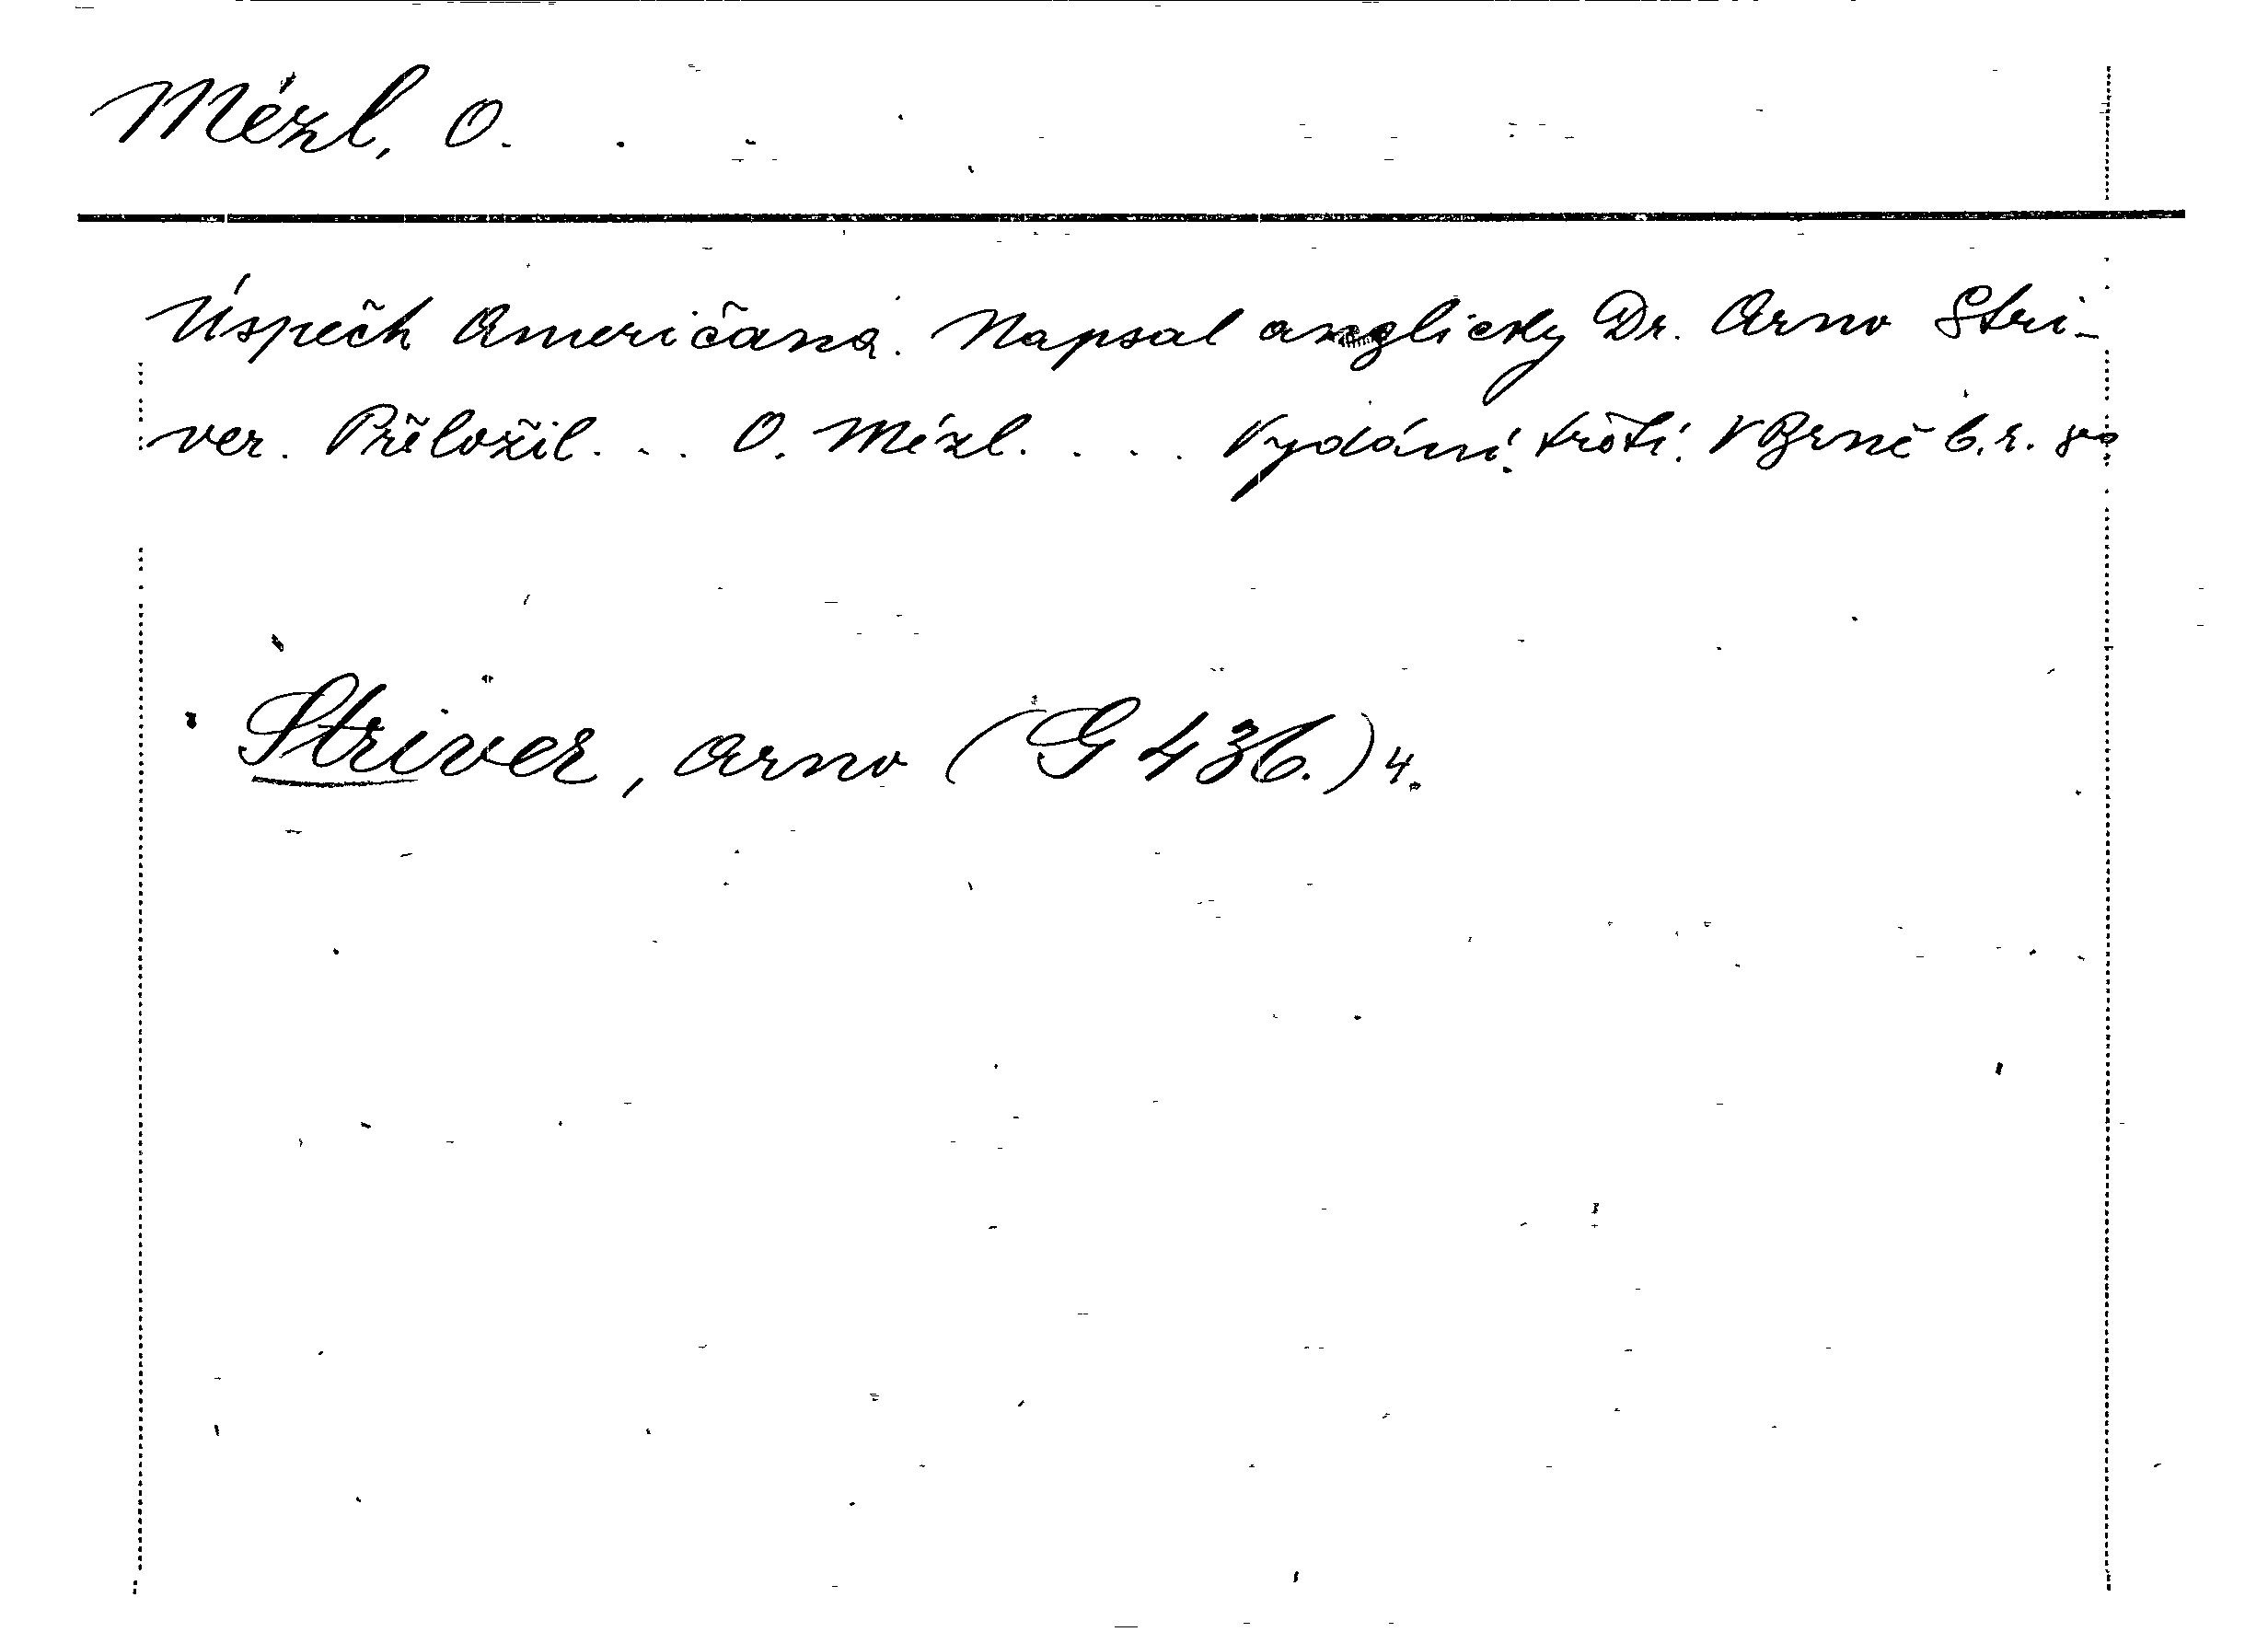 Mézl, O.
Úspěch Američana. Napsal anglicky Dr. Arno Stri-
ver. Přeložil... O. Mézl.... Vydání třetí. V Brně b. r. 8º
Striver, Arno (G 436.) 4.